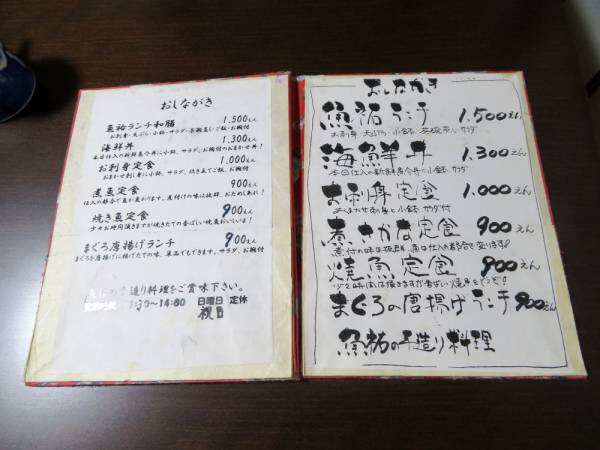 おしながき
魚祐ランチ和膳 1.500えん
お刺身・天ぷら・小鉢・サラダ・茶碗蒸し・ご飯・お椀付
海鮮丼 1.300えん
本日仕入の新鮮魚介丼に小鉢、サラダ、お椀付のおまかせ丼!
お刺身定食 1.000えん
おまかせ刺し身に小鉢、サラダ、炊き立てご飯、お椀付
煮魚定食 900えん
仕入の都合で魚が変わります。煮付けの味は抜群、おためしあれ!
焼き魚定食 900えん
少々お時間頂きますが焼きたての香ばしい焼魚おいしいよ!
まぐろ唐揚げランチ 900えん
まぐろを唐揚げに揚げたての味、単品でもできます。サラダ、お椀付
手造り料理をご賞味下さい。
11:30～14:00 日曜日 定休
祝日
おしながき
魚祐ランチ 1.500えん
お刺身 天ぷら 小鉢 茶碗蒸し サラダ
海鮮丼 1.300えん
本日仕入の新鮮魚介丼に小鉢 サラダ
お刺身定食 1.000えん
おまかせ刺身と小鉢 サラダ付
煮さかな定食 900えん
煮付の味は抜群 魚は仕入の都合で変ります!
焼魚定食 900えん
少々時間は頂きますが香ばしい焼魚をどうぞ!
まぐろの唐揚げランチ 900えん
魚祐の手造り料理